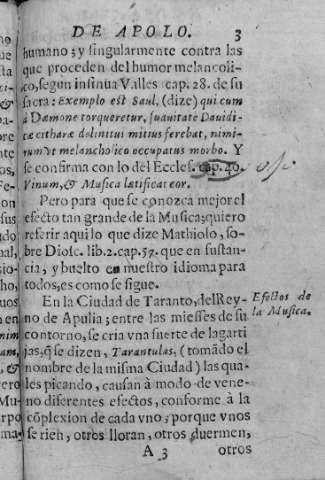 DE APOLO. 3
humano; y singularmente contra las
que proceden del humor melancoli-
co, segun insinua Valles cap. 28. de su
sacra: Exemplo est Saul, (dize) qui cum
a Dæmone torqueretur, suauitate Dauidi-
cæ citharæ delinitus mitius ferebat, nimi-
rum vt melancholico occupatus morbo. Y
se confirma con lo del Eccles. cap. 40.
Vinum, & Musica lætificat cor.
Pero para que se conozca mejor el
efecto tan grande de la Musica; quiero
referir aqui lo que dize Mathiolo, so-
bre Diosc. lib. 2. cap. 57. que en sustan-
cia, y buelto en nuestro idioma para
todos, es como se sigue.
En la Ciudad de Taranto, del Rey-
no de Apulia; entre las miesses de su
contorno, se cria vna suerte de lagarti
jas, q̃ se dizen, Tarantulas, (tomãdo el
nombre de la misma Ciudad) las qua-
les picando, causan à modo de vene-
no diferentes efectos, conforme à la
cõplexion de cada vno; porque vnos
se rien, otros lloran, otros duermen,
A 3 otros
Efectos de
la Musica.